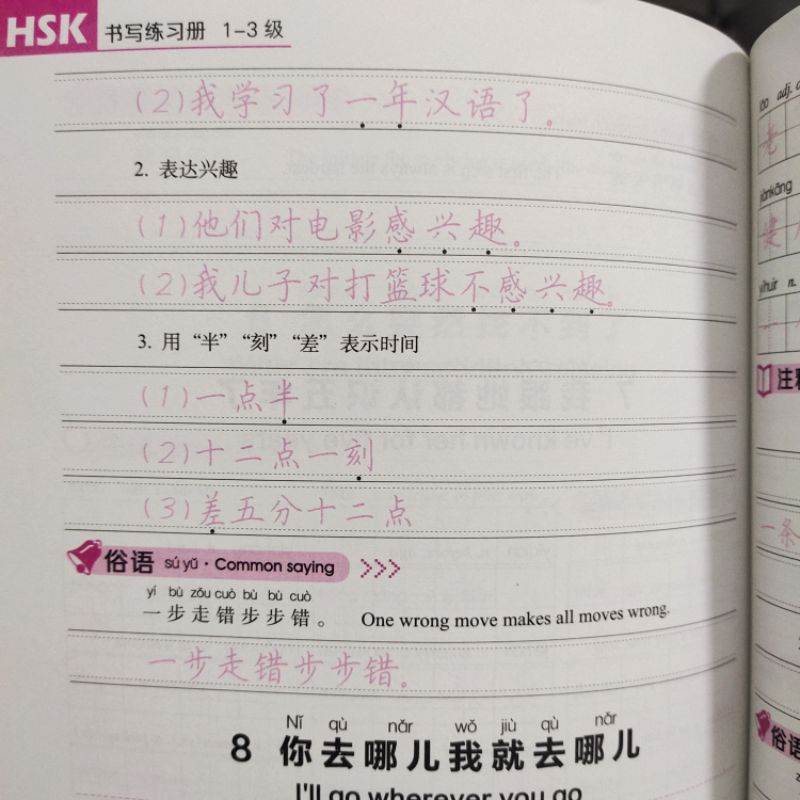 HSK 书写练习册 1-3 级
(2)我学习了一年汉语了。
2. 表达兴趣
(1)他们对电影感兴趣。
(2)我儿子对打篮球不感兴趣。
3. 用“半”“刻”“差”表示时间
(1)一点半
(2)十二点一刻
(3)差五分十二点
俗语 sú yǔ · Common saying
yí bù zǒu cuò bù bù cuò
一步走错步步错。 One wrong move makes all moves wrong.
一步走错步步错。
Nǐ qù nǎr wǒ jiù qù nǎr
8 你去哪儿我就去哪儿
I'll go wherever you go
lǎo adj.
老
yìhuìr n.
一条
俗语